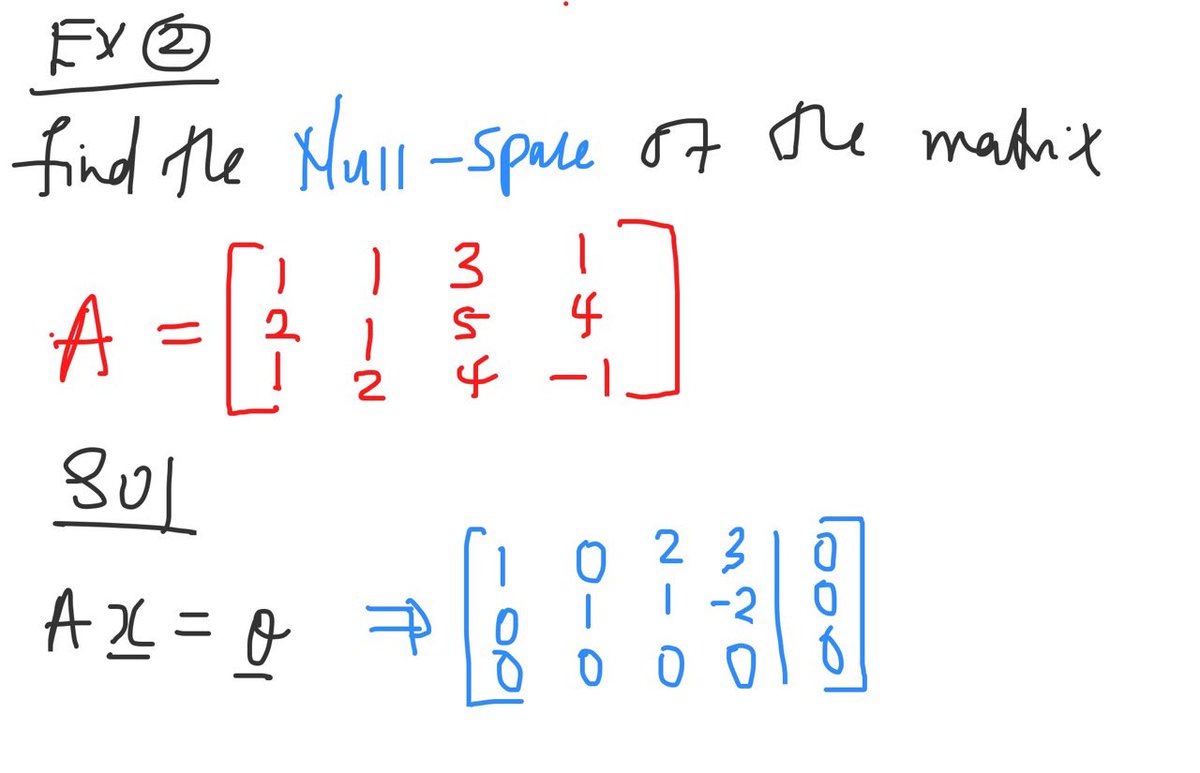 Ex ②
find the Null-space of the matrix
A = [ 1 1 3 1
2 1 5 4
1 2 4 -1 ]
Sol
A x = θ ⇒ [ 1 0 2 3 | 0
0 1 1 -2 | 0
0 0 0 0 | 0 ]